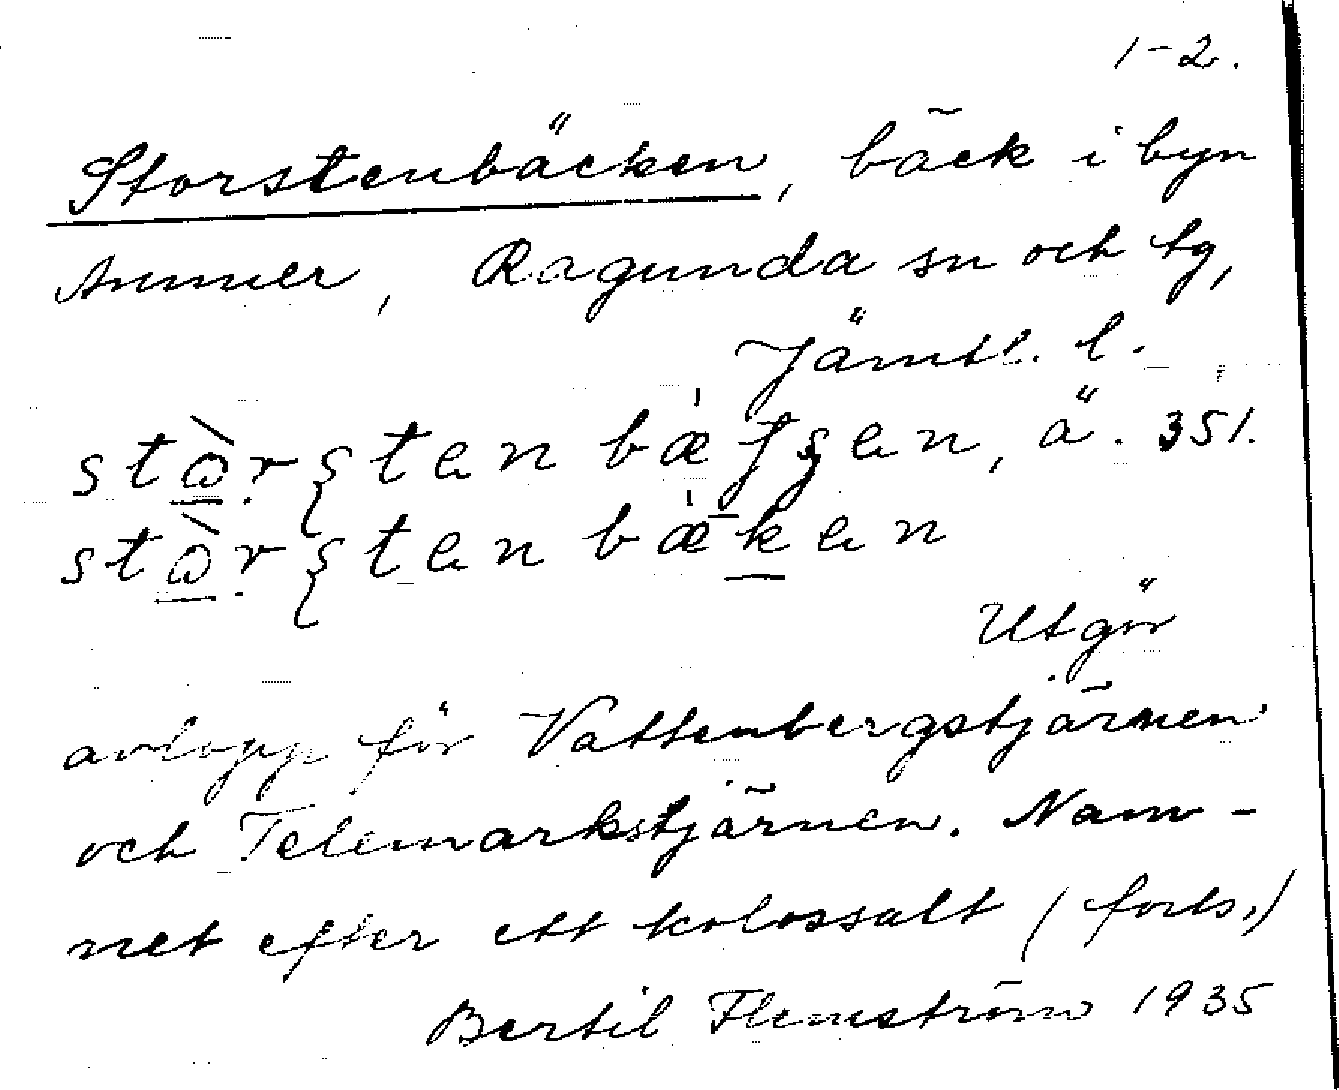 1-2.
Storstenbäcken, bäck i byn
Ammer, Ragunda sn och tg,
Jämtl. l.
ä. 351.
Utgör
avlopp för Vattenbergstjärnen
och Telemarkstjärnen. Nam-
net efter ett kolossalt (forts.)
Bertil Flemström 1935